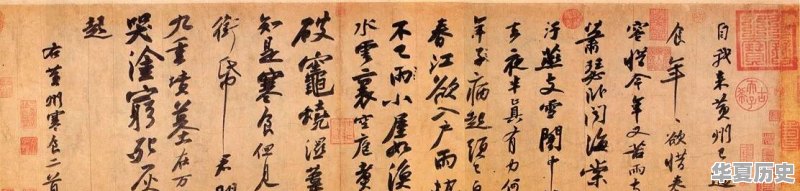 自我来黃州已過
食年〻欲惜春
容惜今年又苦雨
蕭瑟卧聞海棠
汙燕支雪闇中
去夜半真有力何
年子病起頭已白
春江欲入户雨勢
不已雨小屋如漁
水雲裏空庖煮
破竈燒濕葦
知是寒食但見
銜帋君門
九重墳墓在万
哭塗窮死灰
起
右黃州寒食二首
华夏历史